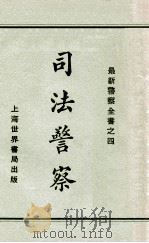 最新警察全書之四
司法警察
上海世界書局出版